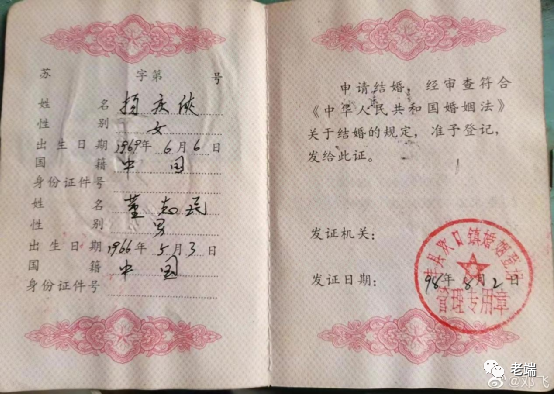 苏 字第 号
姓名 杨庆侠
性别 女
出生日期 1969年6月6日
国籍 中国
身份证件号
姓名 董志民
性别 男
出生日期 1966年5月3日
国籍 中国
身份证件号
申请结婚，经审查符合
《中华人民共和国婚姻法》
关于结婚的规定，准予登记，
发给此证。
发证机关：
发证日期： 98年8月2日
管理专用章
老端
@邓飞